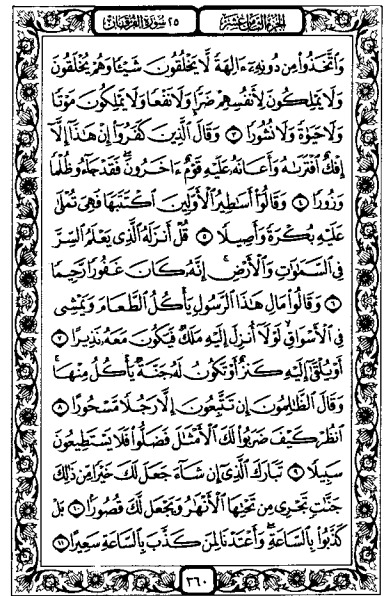 الجزء الثامن عشر ٢٥ سورة الفرقان
وَٱتَّخَذُوا۟ مِن دُونِهِۦٓ ءَالِهَةً لَّا يَخْلُقُونَ شَيْـًٔا وَهُمْ يُخْلَقُونَ
وَلَا يَمْلِكُونَ لِأَنفُسِهِمْ ضَرًّا وَلَا نَفْعًا وَلَا يَمْلِكُونَ مَوْتًا
وَلَا حَيَوٰةً وَلَا نُشُورًا ٣ وَقَالَ ٱلَّذِينَ كَفَرُوٓا۟ إِنْ هَٰذَآ إِلَّآ
إِفْكٌ ٱفْتَرَىٰهُ وَأَعَانَهُۥ عَلَيْهِ قَوْمٌ ءَاخَرُونَ ۖ فَقَدْ جَآءُو ظُلْمًا
وَزُورًا ٤ وَقَالُوٓا۟ أَسَٰطِيرُ ٱلْأَوَّلِينَ ٱكْتَتَبَهَا فَهِىَ تُمْلَىٰ
عَلَيْهِ بُكْرَةً وَأَصِيلًا ٥ قُلْ أَنزَلَهُ ٱلَّذِى يَعْلَمُ ٱلسِّرَّ
فِى ٱلسَّمَٰوَٰتِ وَٱلْأَرْضِ ۚ إِنَّهُۥ كَانَ غَفُورًا رَّحِيمًا
٦ وَقَالُوا۟ مَالِ هَٰذَا ٱلرَّسُولِ يَأْكُلُ ٱلطَّعَامَ وَيَمْشِى
فِى ٱلْأَسْوَاقِ ۙ لَوْلَآ أُنزِلَ إِلَيْهِ مَلَكٌ فَيَكُونَ مَعَهُۥ نَذِيرًا ٧
أَوْ يُلْقَىٰٓ إِلَيْهِ كَنزٌ أَوْ تَكُونُ لَهُۥ جَنَّةٌ يَأْكُلُ مِنْهَا ۚ
وَقَالَ ٱلظَّٰلِمُونَ إِن تَتَّبِعُونَ إِلَّا رَجُلًا مَّسْحُورًا ٨
ٱنظُرْ كَيْفَ ضَرَبُوا۟ لَكَ ٱلْأَمْثَٰلَ فَضَلُّوا۟ فَلَا يَسْتَطِيعُونَ
سَبِيلًا ٩ تَبَارَكَ ٱلَّذِىٓ إِن شَآءَ جَعَلَ لَكَ خَيْرًا مِّن ذَٰلِكَ
جَنَّٰتٍ تَجْرِى مِن تَحْتِهَا ٱلْأَنْهَٰرُ وَيَجْعَل لَّكَ قُصُورًۢا ١٠ بَلْ
كَذَّبُوا۟ بِٱلسَّاعَةِ ۖ وَأَعْتَدْنَا لِمَن كَذَّبَ بِٱلسَّاعَةِ سَعِيرًا ١١
٣٦٠